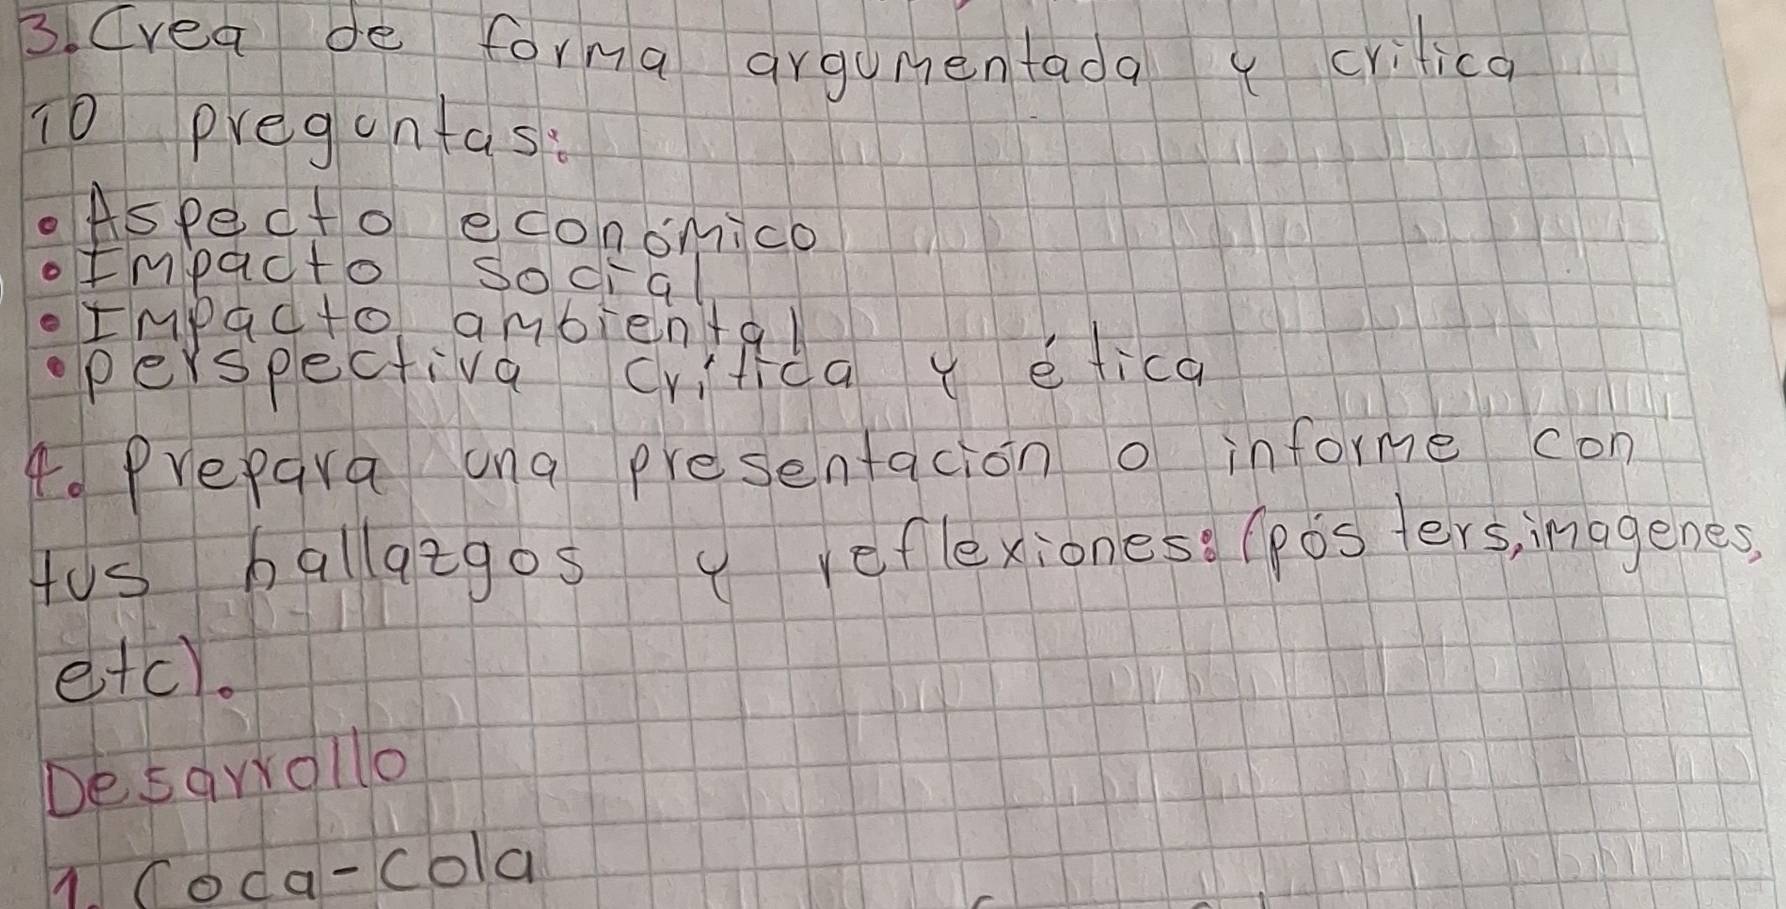 3. Crea de forma argumentada y critica
10 preguntas:
• Aspecto económico
• Impacto social
• Impacto ambiental
• perspectiva crítica y ética
4. Prepara una presentación o informe con
tus hallazgos y reflexiones: (pósters, imagenes,
etc).
Desarrollo
1. Coca-cola